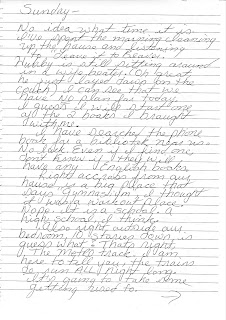 Sunday -
No idea what time it is.
I've spent the morning cleaning
up the house and listening
to Leave it to Beaver.
Hubby is still sitting around
in his boxers. (Oh great
he just layed down on the
couch) I can see that we
have no plan for today.
I guess I will start one
of the 2 books I brought
with me.
I have searched the phone
book for a bibliotek near us.
No luck. Even if I find one,
don't know if they will
have any English books.
Right across from our
house is a big place that
says Gymnasium. I thought
it was a workout place.
Nope. It is a school. A
high school, I think.
Also right outside our
bedroom, 10 stories down is
guess what? Thats right,
The Metro track. I am
here to tell you the trains
do run ALL night long.
It's going to take some
getting used to.